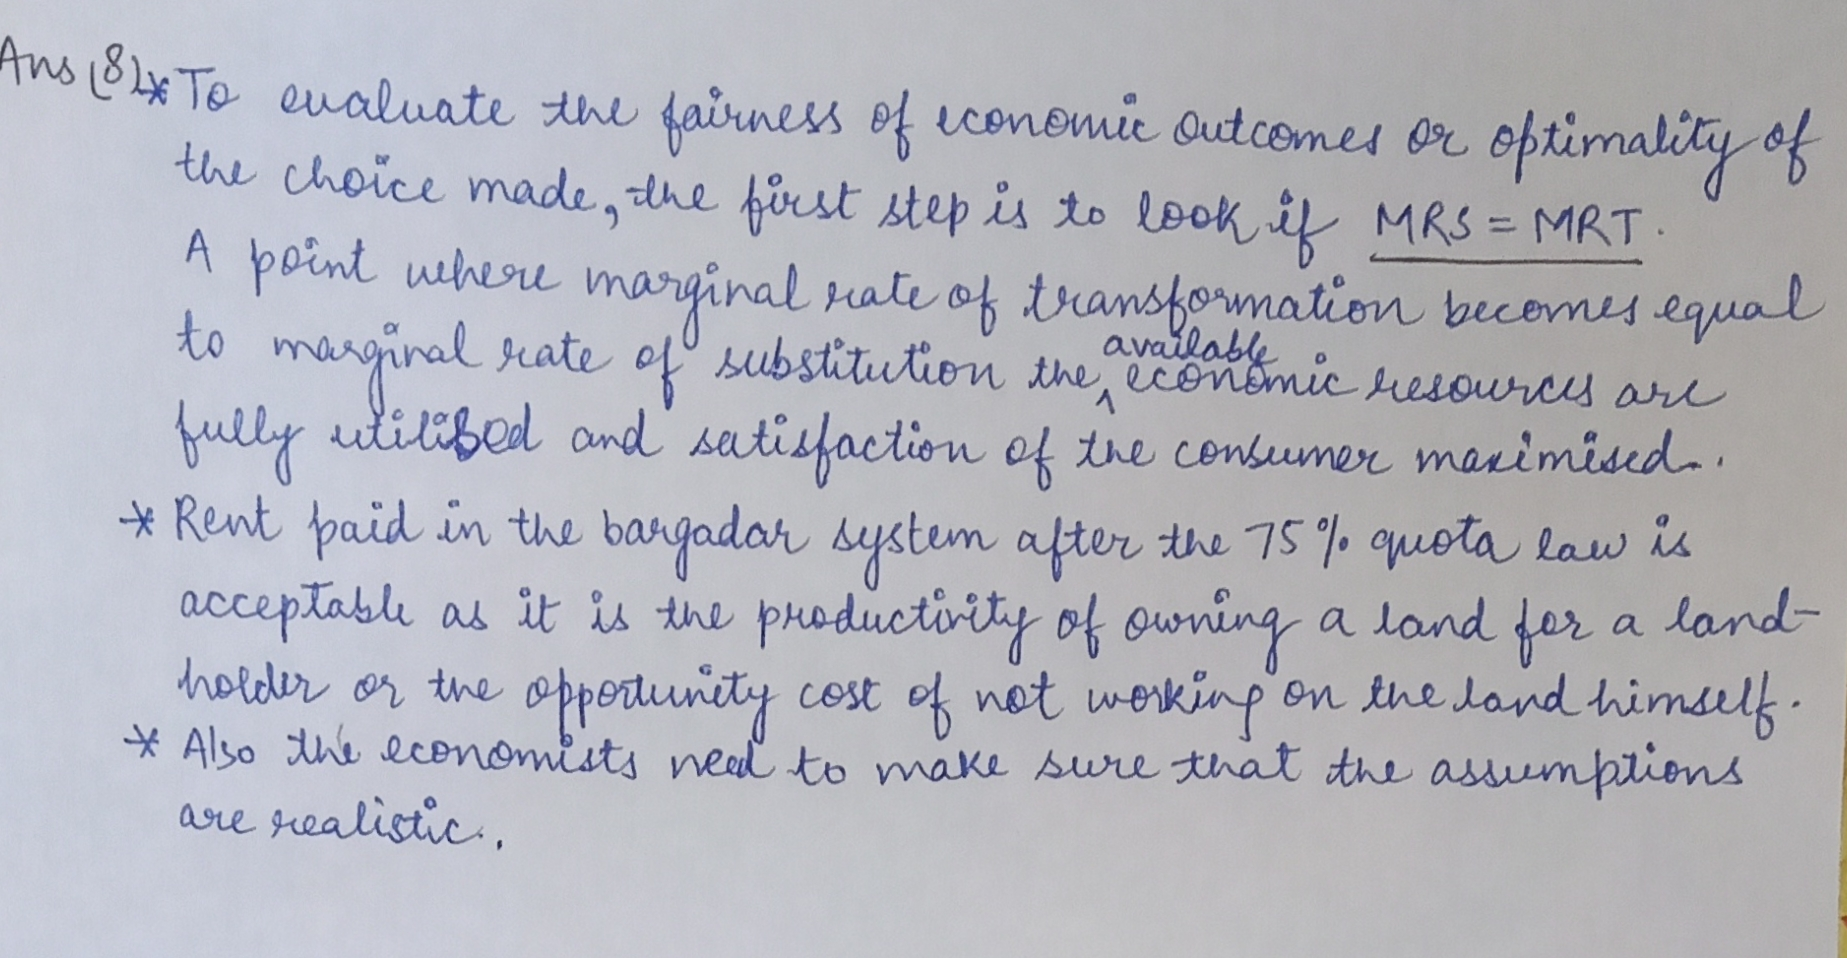 Ans (8) * To evaluate the fairness of economic outcomes or optimality of
the choice made, the first step is to look if MRS = MRT.
A point where marginal rate of transformation becomes equal
to marginal rate of substitution the available economic resources are
fully utilised and satisfaction of the consumer maximised.
* Rent paid in the bargadar system after the 75% quota law is
acceptable as it is the productivity of owning a land for a land-
holder or the opportunity cost of not working on the land himself.
* Also the economists need to make sure that the assumptions
are realistic.